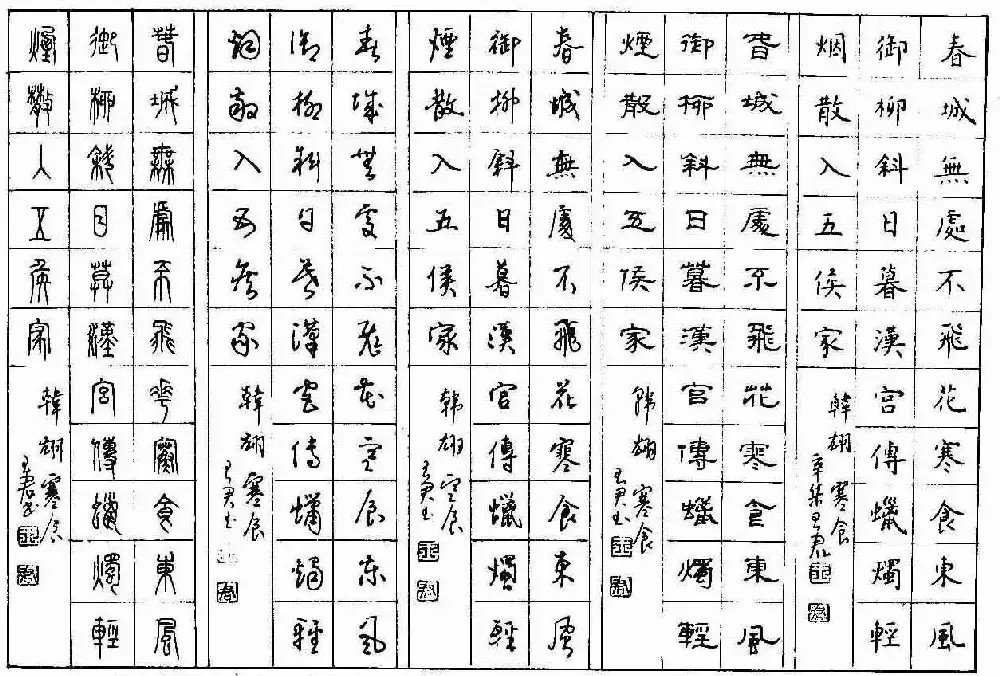 春城無處不飛花寒食東風
御柳斜日暮漢宮傳蠟燭輕
烟散入五侯家
韓翃寒食
春城無處不飛花寒食東風
御柳斜日暮漢宮傳蠟燭輕
煙散入五侯家
韓翃寒食
春城無處不飛花寒食東風
御柳斜日暮漢宮傳蠟燭輕
煙散入五侯家
韓翃寒食
春城無處不飛花寒食東風
御柳斜日暮漢宮傳蠟燭輕
烟散入五侯家
韓翃寒食
春城無處不飛花寒食東風
御柳斜日暮漢宮傳蠟燭輕
煙散入五侯家
韓翃寒食